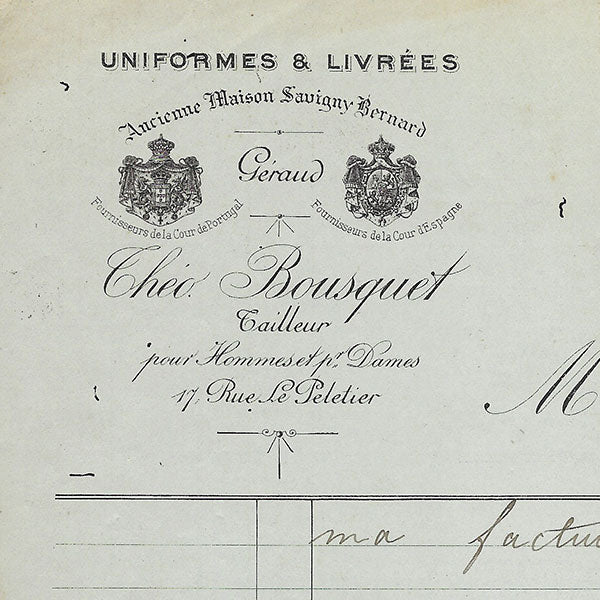 UNIFORMES & LIVRÉES
Ancienne Maison Savigny Bernard
Géraud
Fournisseurs de la Cour de Portugal
Fournisseurs de la Cour d'Espagne
Théo. Bousquet
Tailleur
pour Hommes et pr. Dames
17, Rue Le Peletier
M
ma factu